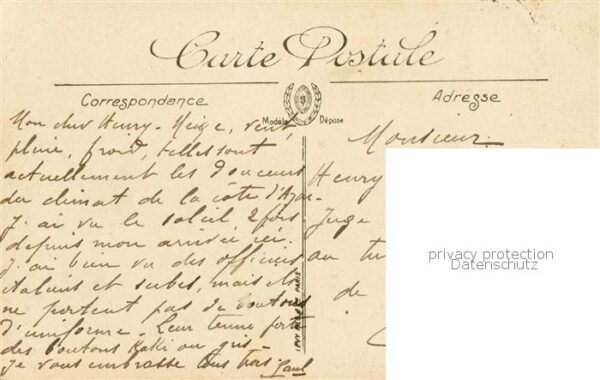 Carte Postale
Correspondance
Adresse
Modèle Déposé
Mon cher Henry - Neige, vent,
pluie, froid, telles sont
actuellement les douceurs
du climat de la côte d'Azur.
J'ai vu le soleil 2 fois
depuis mon arrivée ici.
J'ai bien vu des officiers
italiens et serbes, mais ils
ne portent pas de boutons
d'uniforme. Leur tenue porte
des boutons Kaki ou gris -
Je vous embrasse tous trois Paul
PARIS
Monsieur
Henry
Juge
au
de
privacy protection
Datenschutz